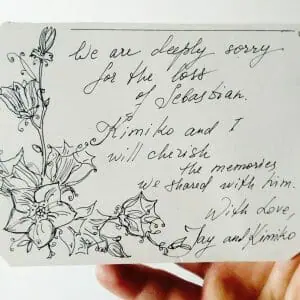 We are deeply sorry
for the loss
of Sebastian.
Kimiko and I
will cherish
the memories
we shared with him.
With Love,
Jay and Kimiko